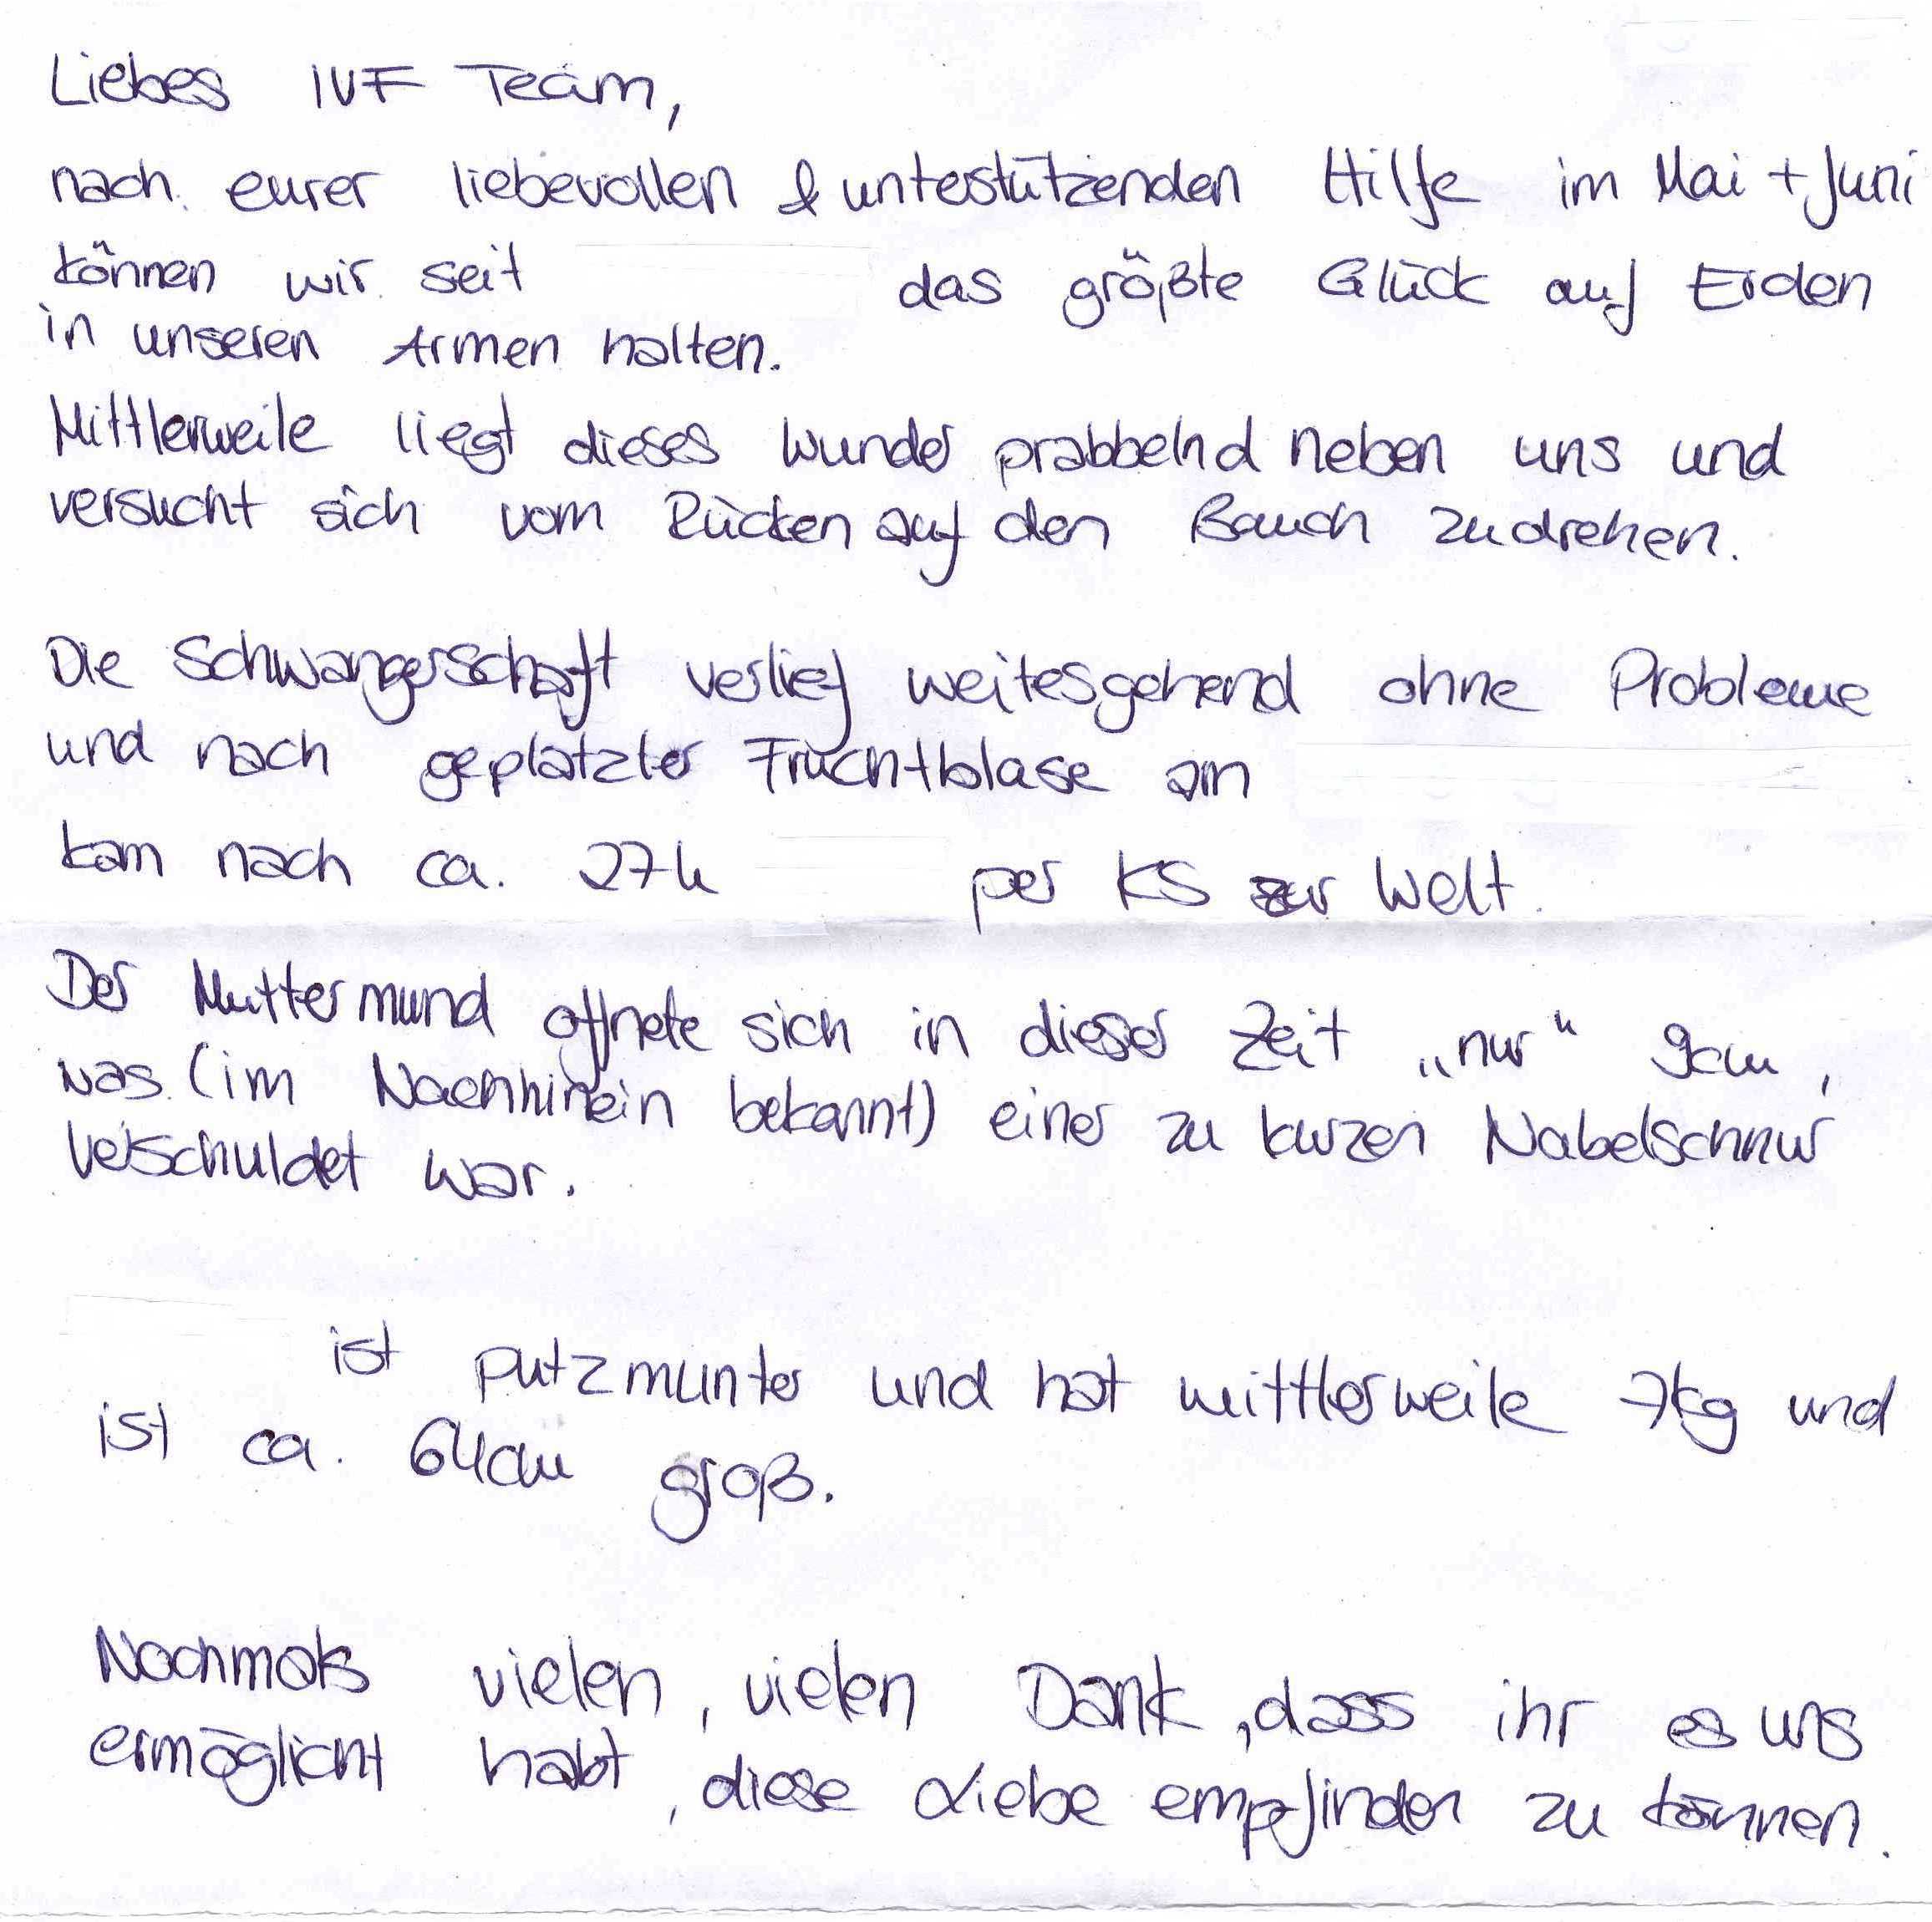 Liebes IVF Team,
nach eurer liebevollen & unterstützenden Hilfe im Mai + Juni
können wir seit das größte Glück auf Erden
in unseren Armen halten.
Mittlerweile liegt dieses Wunder prabbelnd neben uns und
versucht sich vom Rücken auf den Bauch zudrehen.
Die Schwangerschaft verlief weitesgehend ohne Probleme
und nach geplatzter Fruchtblase am
kam nach ca. 27h per KS zur Welt.
Der Muttermund öffnete sich in dieser Zeit „nur“ 9cm,
was (im Nachhinein bekannt) einer zu kurzen Nabelschnur
verschuldet war.
ist putzmunter und hat mittlerweile 7kg und
ist ca. 64cm groß.
Nochmals vielen, vielen Dank, dass ihr es uns
ermöglicht habt, diese Liebe empfinden zu können.